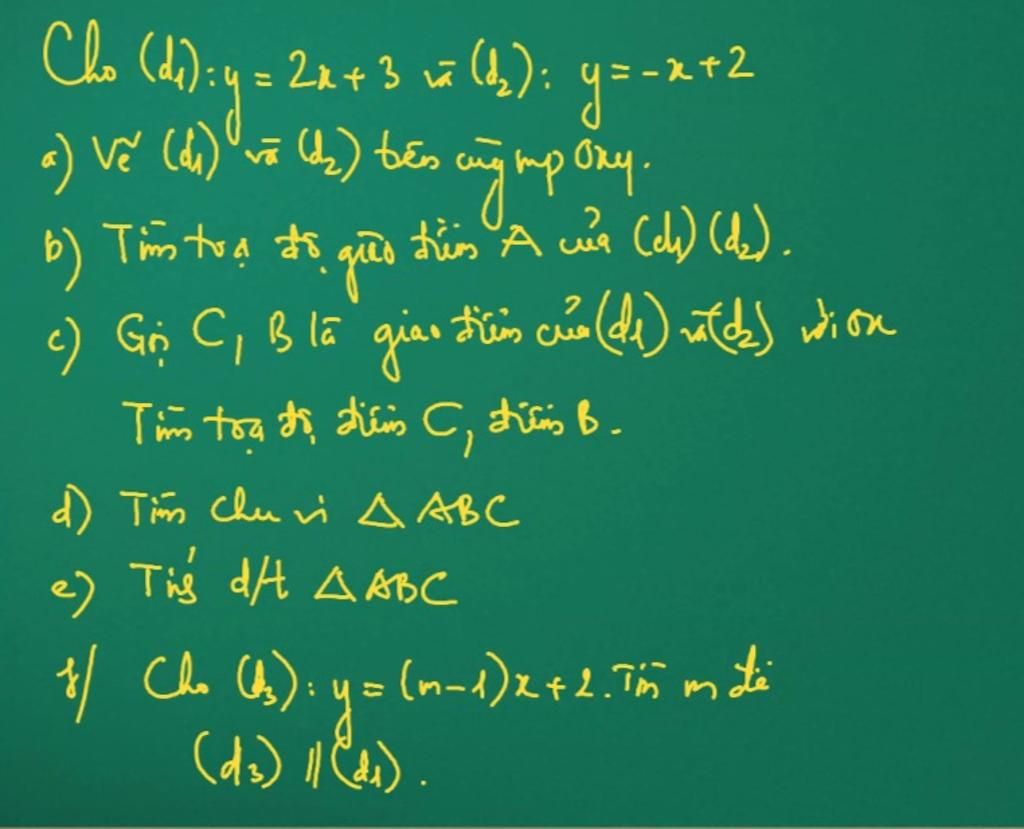 Cho (d₁): y = 2x + 3 và (d₂): y = -x + 2
a) Vẽ (d₁) và (d₂) trên cùng mp Oxy.
b) Tìm toạ độ giao điểm A của (d₁) (d₂).
c) Gọi C, B là giao điểm của (d₁) và (d₂) với ox
Tìm toạ độ điểm C, điểm B.
d) Tìm chu vi △ ABC
e) Tính d/t △ ABC
f/ Cho (d₃): y = (m-1)x + 2. Tìm m để
(d₃) // (d₁).